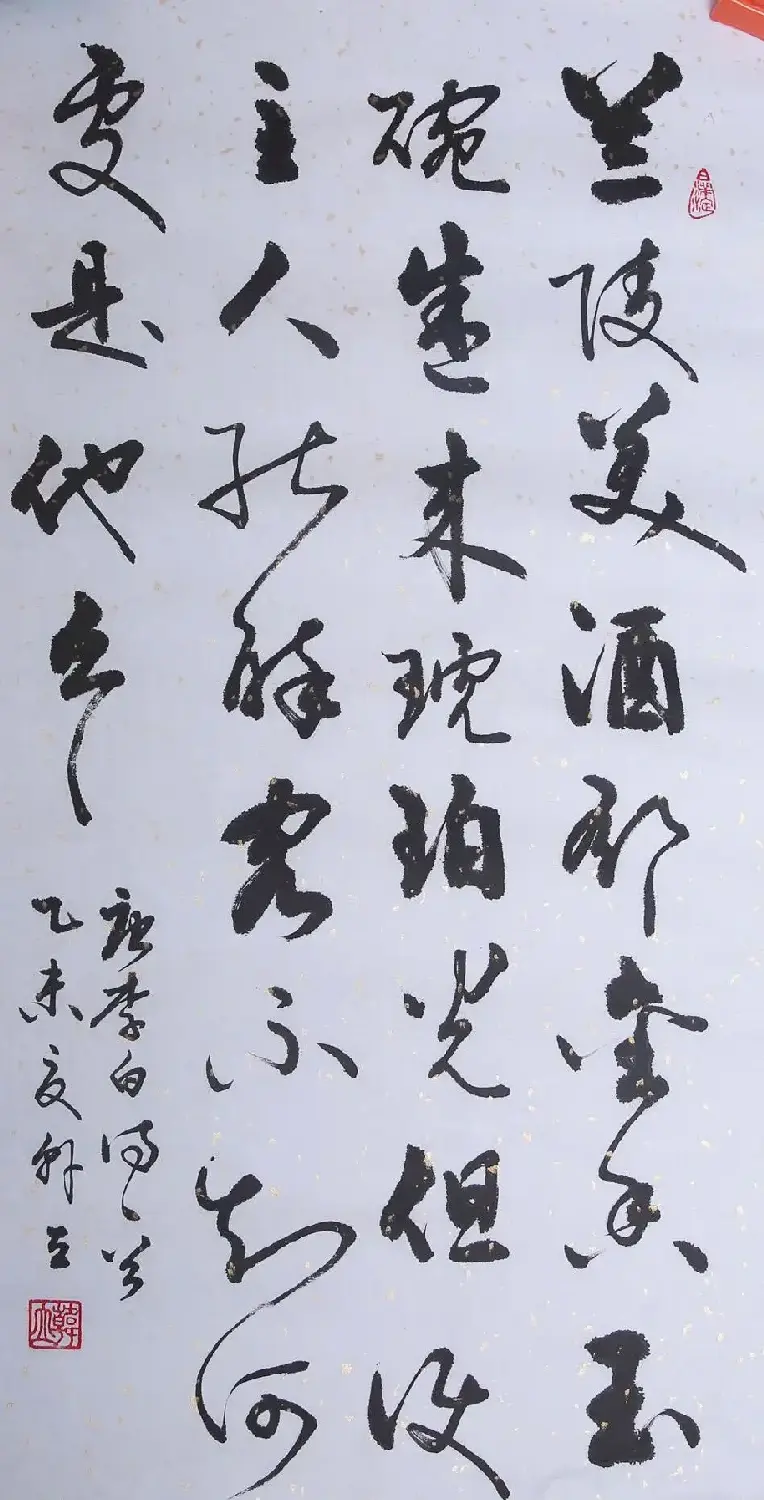 兰陵美酒郁金香玉
碗盛来琥珀光但使
主人能醉客不知何
處是他乡
唐李白诗一首
乙未夏韩立